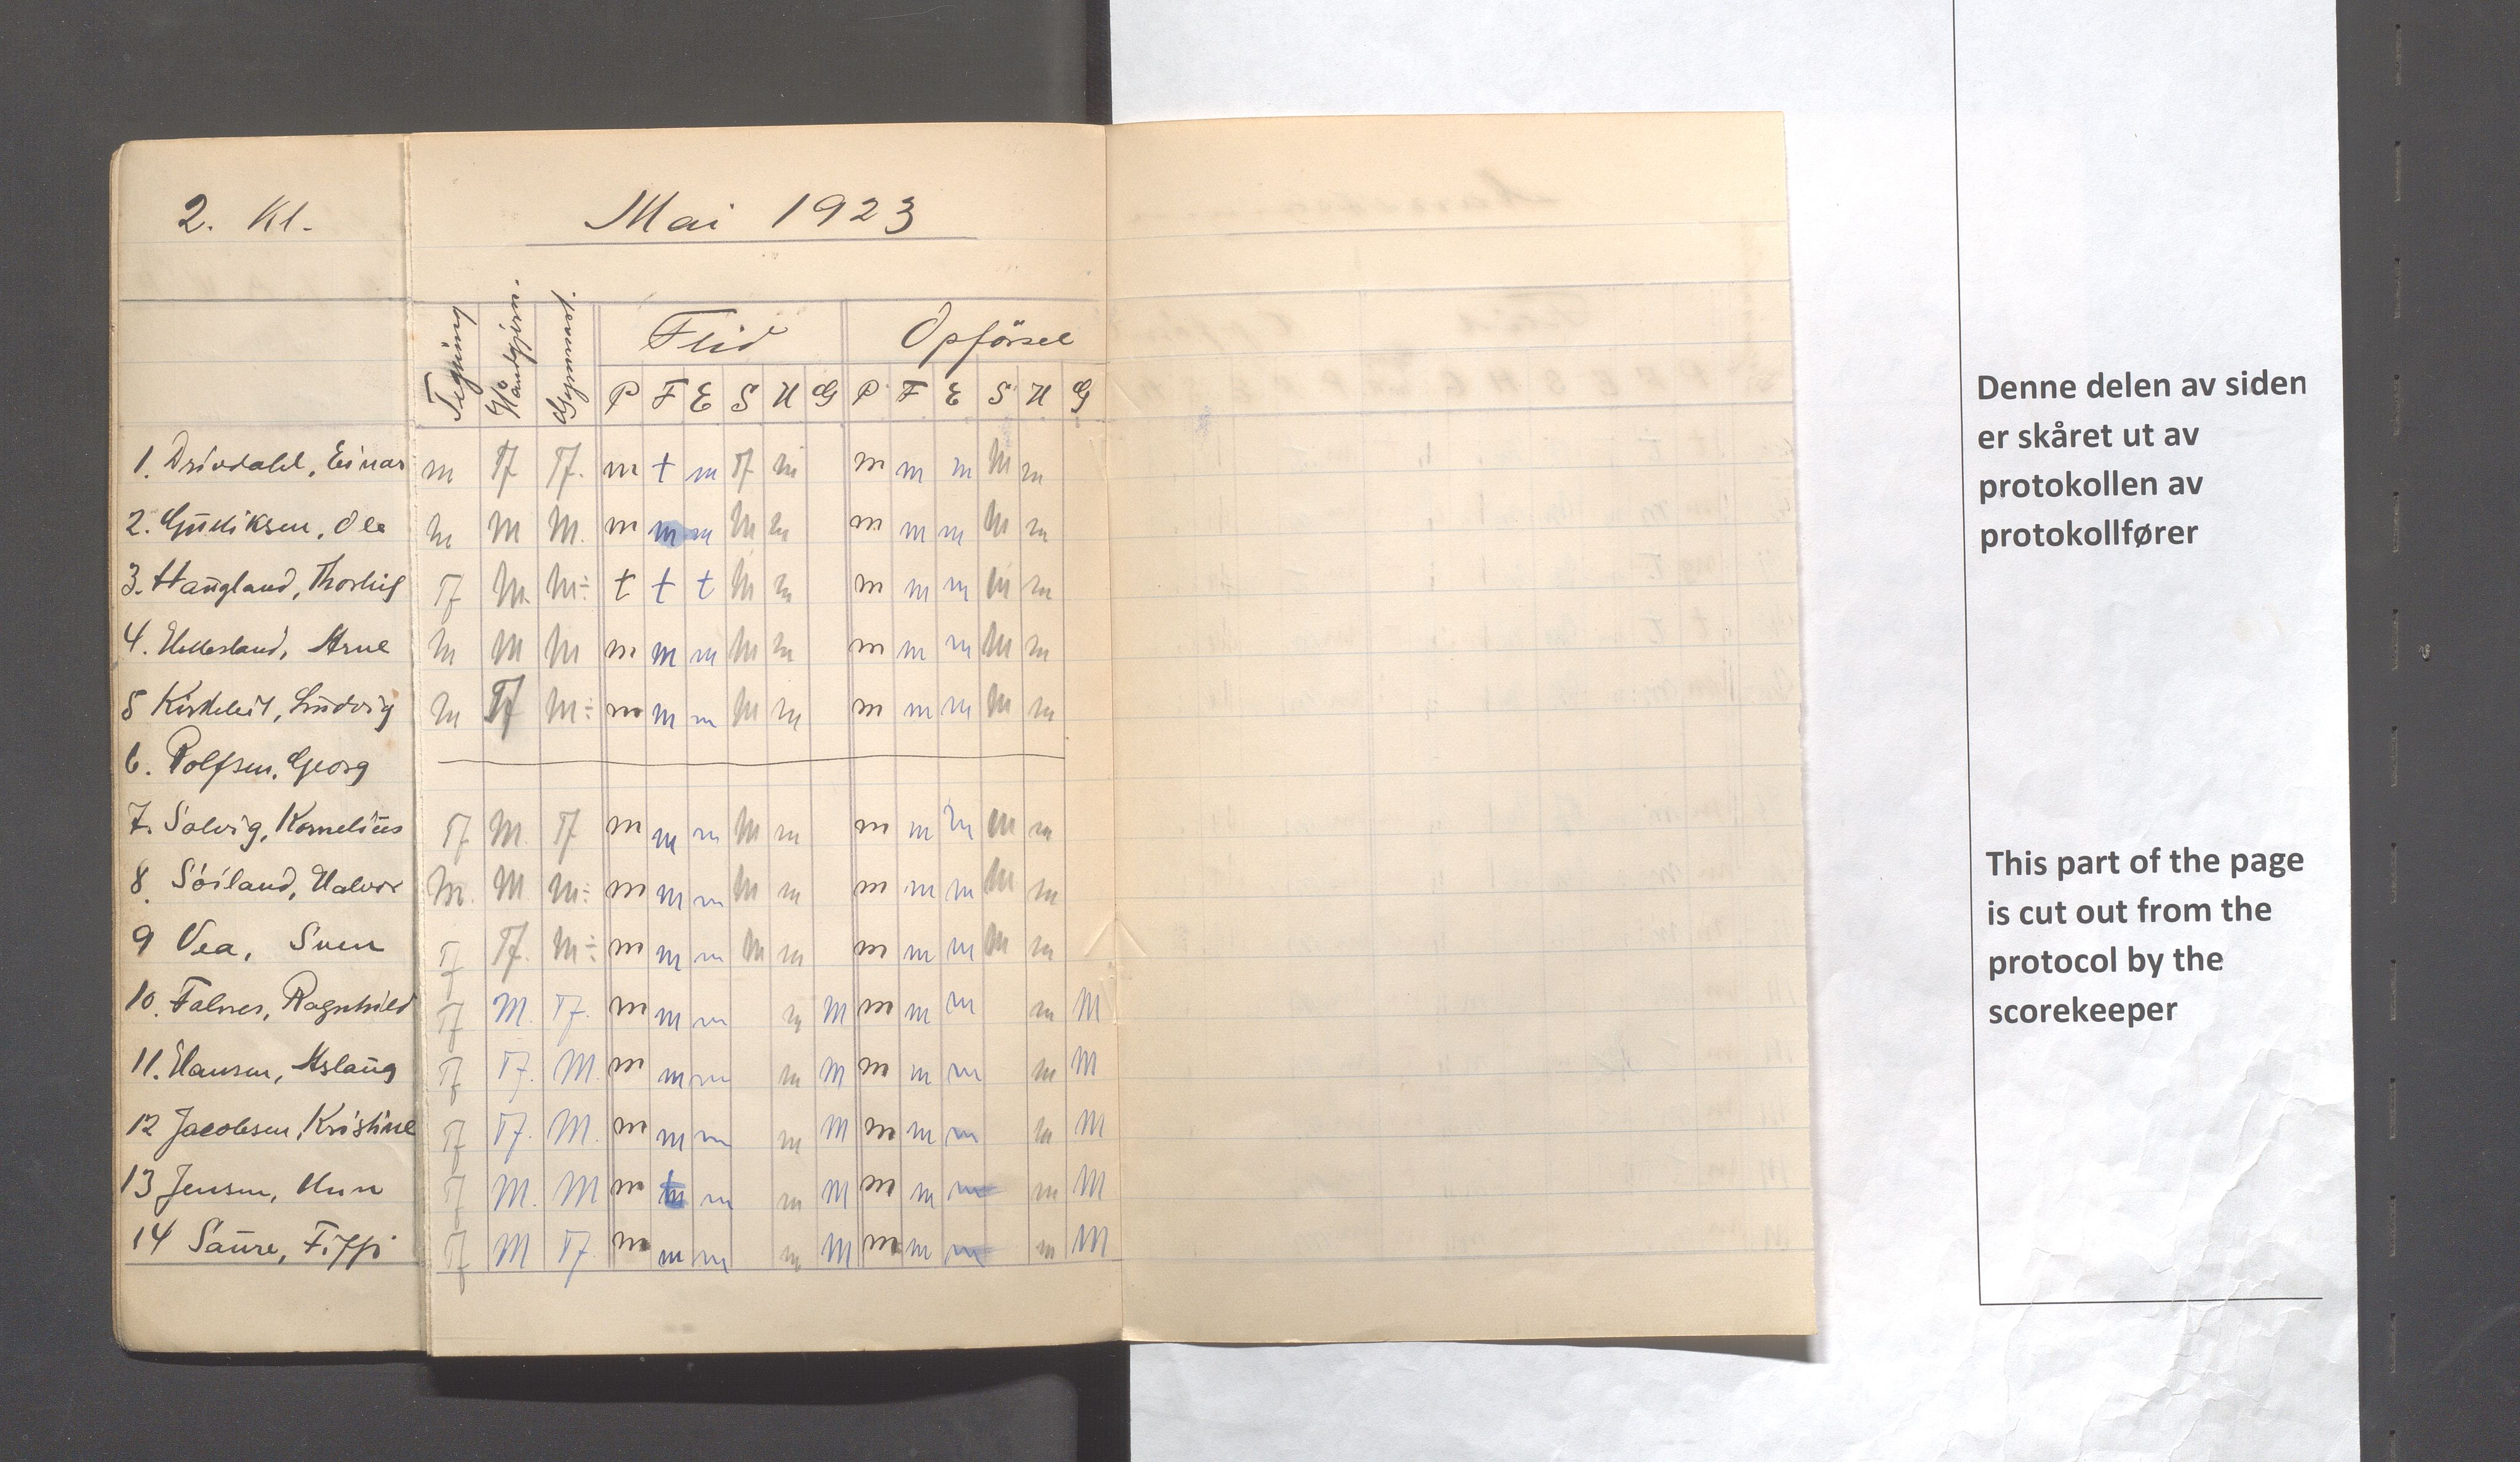 2. Kl.
Mai 1923
Tegning Håndgjern. Gymnast. Flid Opførsel
P F E S H G P F E S H G
1. Drivdahl, Einar m Tf Tf. m t m Tf m m m m M m
2. Gudiksen, Ole m M M. m m m M m m m m M m
3. Haugland, Thorleif Tf M. M÷ t t t M m m m m m m
4. Hellesland, Arne m M M m m m M m m m m M m
5 Kirkeleit, Ludvig m Tf M÷ m m m M m m m m M m
6. Rolfsen, Georg
7. Solvig, Kornelius Tf M. Tf m m m M m m m m m m
8. Søiland, Halvor m. M M÷ m m m M m m m m M m
9 Vea, Sven Tf Tf. M÷ m m m M m m m m M m
10. Falnes, Ragnhild Tf M. Tf. m m m m M m m m m M
11. Hansen, Aslaug Tf Tf. M. m m m m M m m m m M
12 Jacobsen, Kristine Tf Tf. M. m m m m M m m m m M
13 Jensen, Unn Tf M. M m m m M m m m m M
14 Saure, Fiffi Tf M Tf. m m m m M m m m m M
Denne delen av siden
er skåret ut av
protokollen av
protokollfører
This part of the page
is cut out from the
protocol by the
scorekeeper